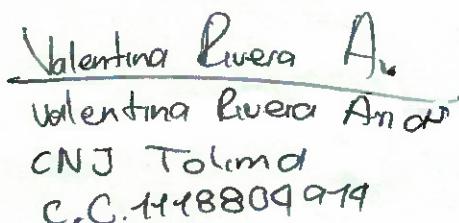 Valentina Rivera A.
Valentina Rivera
CNJ Tolima
C.C. 1118809914